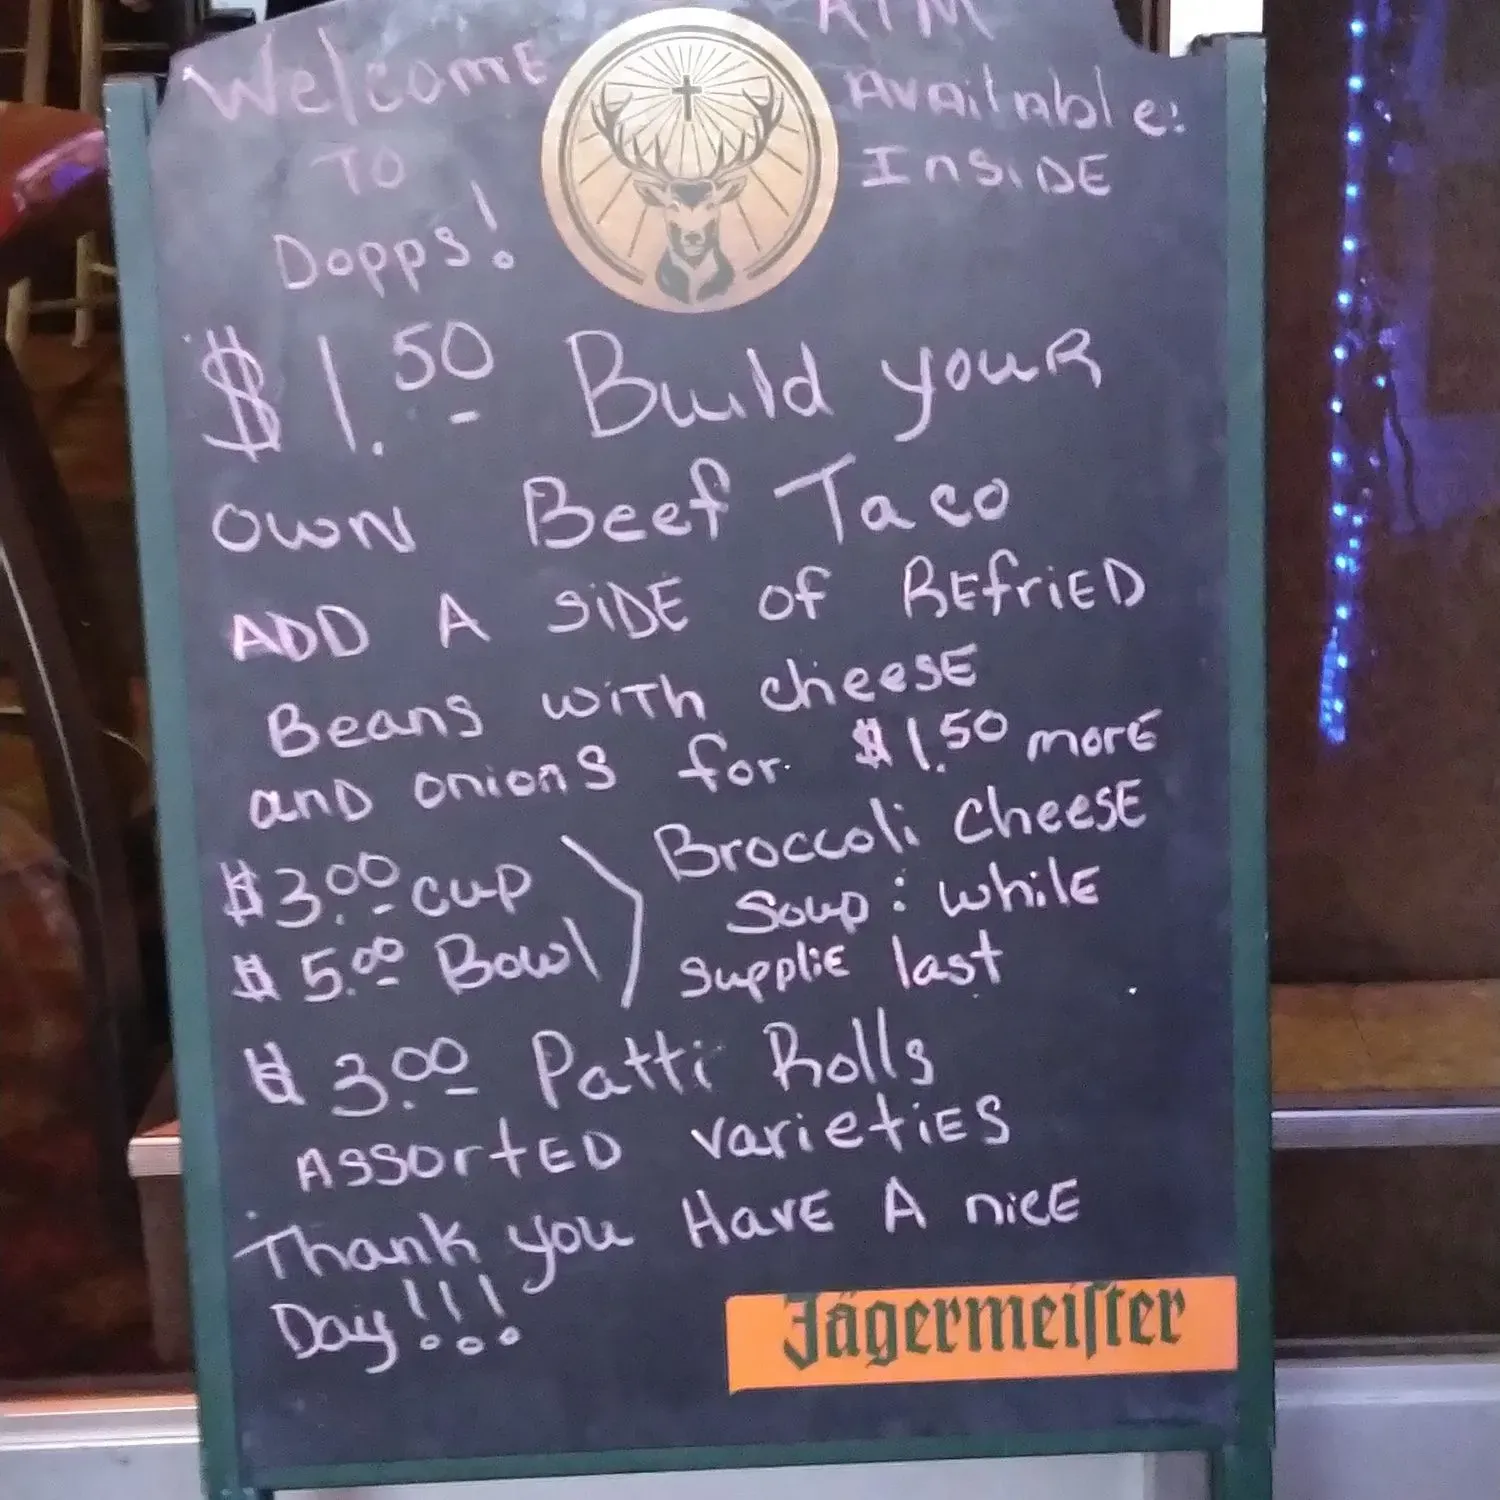 Welcome
To
Dopps!
ATM
Available:
Inside
$1.50 Build your
own Beef Taco
ADD A SiDE of REfriED
Beans with cheese
and onions for $1.50 more
$3.00 cup
$5.00 Bowl
Broccoli cheese
Soup: while
supplie last
$3.00 Patti Rolls
Assorted varieties
Thank you Have A nice
Day!!!
Jägermeiſter